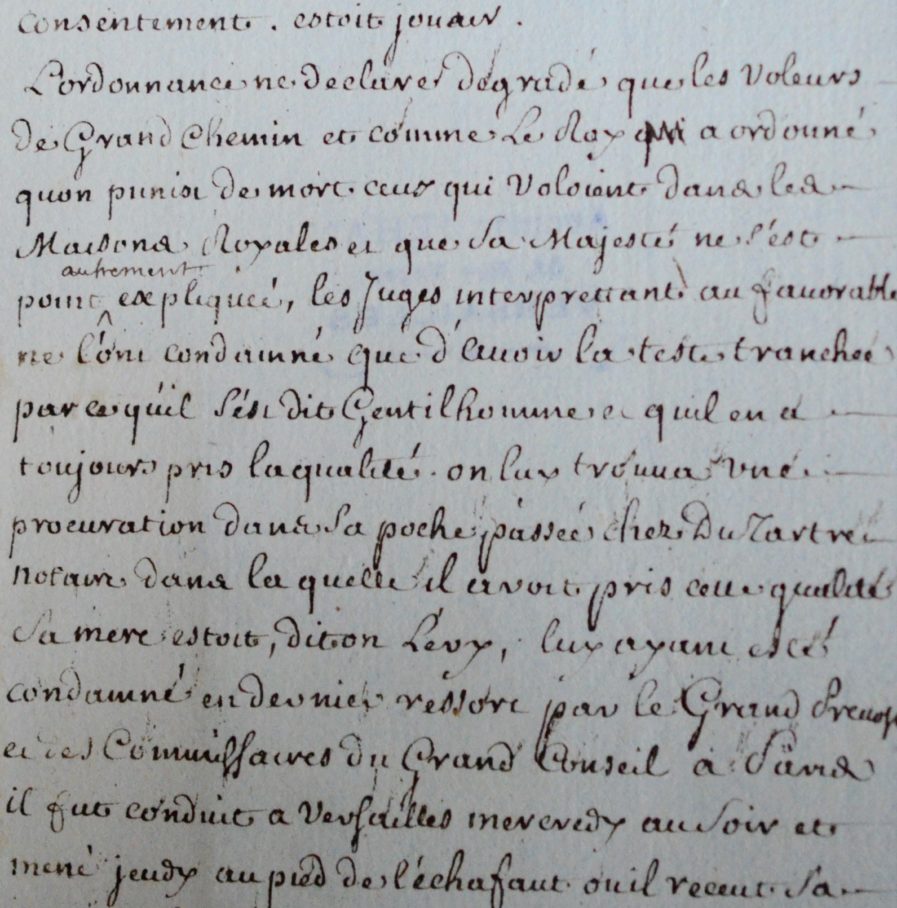 consentement. estoit jouair.
L'ordonnance ne declare dégradé que les Voleurs
de Grand Chemin et comme Le Roy a ordonné
quon punist de mort ceux qui Voloient dans les
Maisons Royales et que Sa Majesté ne s'est
point autrement expliqueé, les Juges interprettant au favorable
ne l'ont condamné que d'avoir la teste tranchée
parce qu'il s'est dit Gentilhomme et quil en a
toujours pris la qualité. on luy trouva une
procuration dans Sa poche passée chez Du Tartre
notaire dans la quelle il avoit pris cette qualité
Sa mere estoit, diton Lévy, luy ayant esté
condamné en dernier ressort par le Grand Prevost
et des Commissaires du Grand Conseil à Paris
il fut conduit a Versailles mercredy au Soir et
mené jeudy au pied de l'échafaut ou il receut Sa